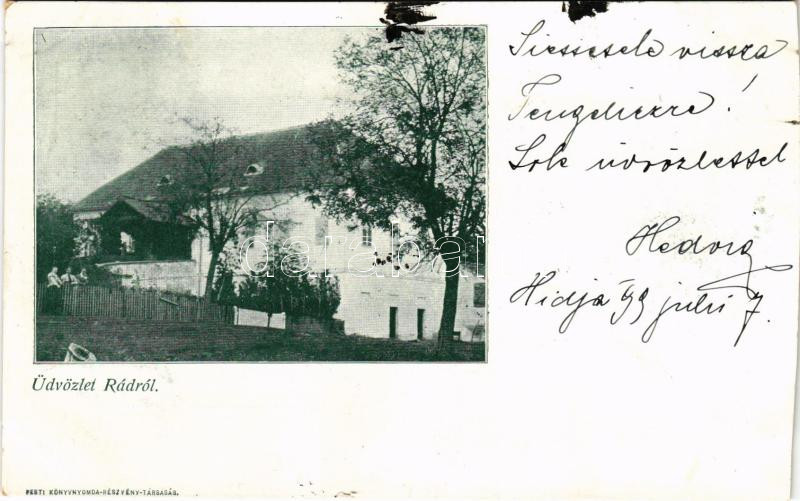 Siessetek vissza
Tengeliczre!
Sok üdvözlettel
Hedvig
Hidja 99 juli 7.
darabanth
Üdvözlet Rádról.
PESTI KÖNYVNYOMDA-RÉSZVÉNY-TÁRSASÁG.